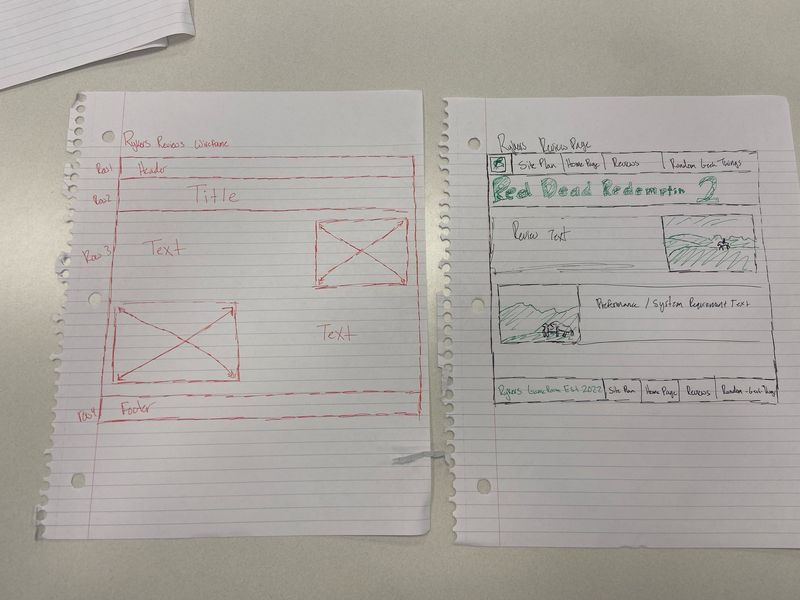 Rykers Reviews Wireframe
Row 1 Header
Row 2 Title
Row 3 Text
Text
Row 4 Footer
Rykers Review Page
Site Plan Home Page Reviews Random Geek Things
Red Dead Redemption 2
Review Text
Preformance / System Requirement Text
Rykers Game Room Est. 2022 Site Plan Home Page Reviews Random-Geek-Things